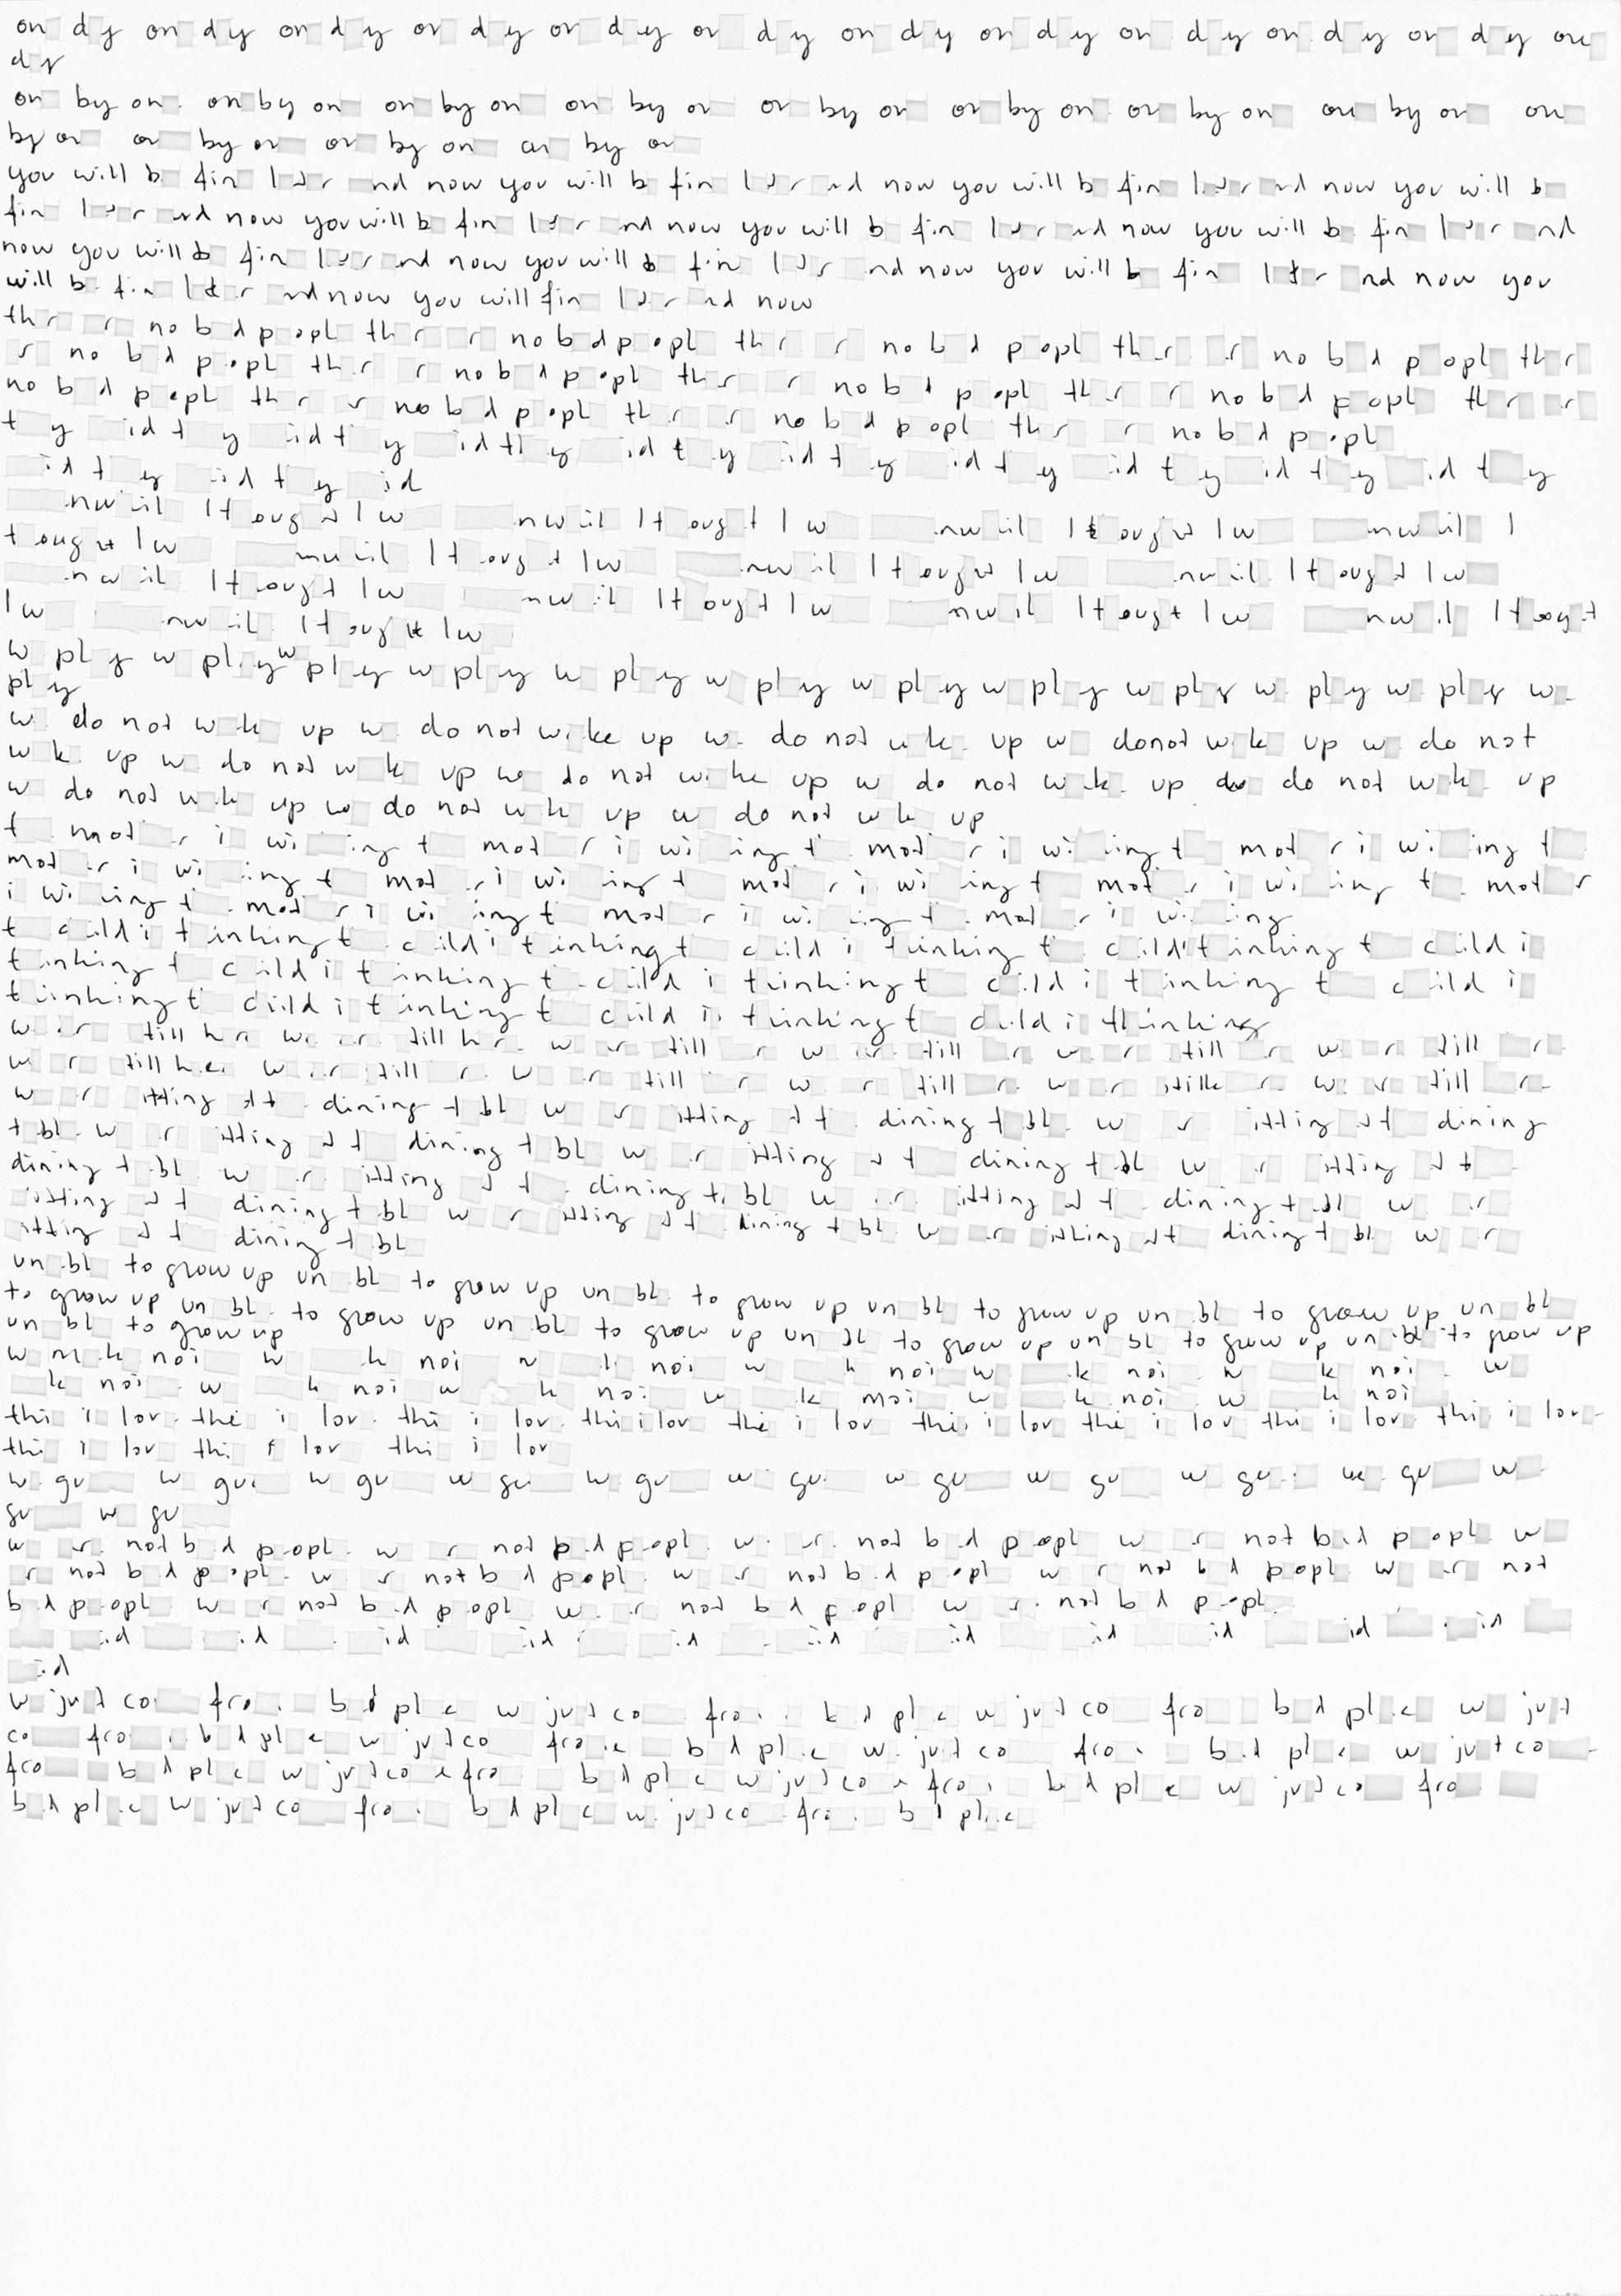 on d y on d y on d y on d y on d y on d y on d y on d y on d y on d y on d y on
d y
on by on on by on on by on on by on on by on on by on on by on on by on on
by on on by on on by on on by on
you will b fin l t r nd now you will b fin l t r nd now you will b fin l t r nd now you will b
fin l t r nd now you will b fin l t r nd now you will b fin l t r nd now you will b fin l t r nd
now you will b fin l t r nd now you will b fin l t r nd now you will b fin l t r nd now you
will b fin l t r nd now you will fin l t r nd now
th r r no b d p opl th r r no b d p opl th r r no b d p opl th r r no b d p opl th r
r no b d p opl th r r no b d p opl th r r no b d p opl th r r no b d p opl th r r
no b d p opl th r r no b d p opl th r r no b d p opl th r r no b d p opl
t y id t y id t y id t y id t y id t y id t y id t y id t y id t y
id t y id t y id
nw il I t oug t I w nw il I t oug t I w nw il I t oug t I w nw il I
t oug t I w nw il I t oug t I w nw il I t oug t I w nw il I t oug t I w
nw il I t oug t I w nw il I t oug t I w nw il I t oug t I w nw il I t oug t
I w nw il I t oug t I w
w pl y w pl y w pl y w pl y w pl y w pl y w pl y w pl y w pl y w pl y w pl y w
pl y
w do not w k up w do not w ke up w do not w k up w do not w k up w do not
w k up w do not w k up w do not w k up w do not w k up w do not w k up
w do not w k up w do not w k up w do not w k up
t mot r i wi ing t mot r i wi ing t mot r i wi ing t mot r i wi ing t
mot r i wi ing t mot r i wi ing t mot r i wi ing t mot r i wi ing t mot r
i wi ing t mot r i wi ing t mot r i wi ing t mot r i wi ing
t c ild i t inking t c ild i t inking t c ild i t inking t c ild i t inking t c ild i
t inking t c ild i t inking t c ild i t inking t c ild i t inking t c ild i
t inking t c ild i t inking t c ild i t inking t c ild i thinking
w r till h r w r till h r w r till r w r till r w r till r w r till r
w r till h r w r till r w r till r w r till r w r till r w r till r
w r itting t t dining t bl w r itting t t dining t bl w r itting t t dining
t bl w r itting t t dining t bl w r itting t t dining t bl w r itting t t
dining t bl w r itting t t dining t bl w r itting t t dining t bl w r
itting t t dining t bl w r itting t t dining t bl w r itting t t dining t bl w r
itting t t dining t bl
un bl to grow up un bl to grow up un bl to grow up un bl to grow up un bl to grow up un bl
to grow up un bl to grow up un bl to grow up un bl to grow up un bl to grow up un bl to grow up
un bl to grow up
w m k noi w k noi w k noi w k noi w k noi w k noi w
k noi w k noi w k noi w k noi w k noi w k noi
thi i lov thi i lov thi i lov thi i lov thi i lov thi i lov thi i lov thi i lov thi i lov
thi i lov thi i lov thi i lov
w gu w gu w gu w gu w gu w gu w gu w gu w gu w gu w
gu w gu
w r not b d p opl w r not b d p opl w r not b d p opl w r not b d p opl w
r not b d p opl w r not b d p opl w r not b d p opl w r not b d p opl w r not
b d p opl w r not b d p opl w r not b d p opl w r not b d p opl
id id id id id id id id id id id
id
w ju t co fro b d pl c w ju t co fro b d pl c w ju t co fro b d pl c w ju t
co fro b d pl c w ju t co fro b d pl c w ju t co fro b d pl c w ju t co
fro b d pl c w ju t co fro b d pl c w ju t co fro b d pl c w ju t co fro
b d pl c w ju t co fro b d pl c w ju t co fro b d pl c